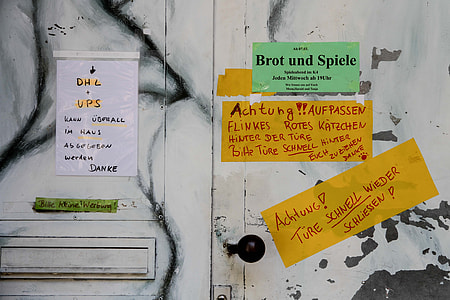 ↓
DHL
+
UPS
KANN ÜBERALL
IM HAUS
ABGEGEBEN
werden
DANKE
Bitte Keine Werbung!
Ab 07.03.
Brot und Spiele
Spieleabend im K4
Jeden Mittwoch ab 19Uhr
Wir freuen uns auf Euch
Achtung!! AUFPASSEN
FLINKES ROTES KÄTZCHEN
HINTER DER TÜRE
Bitte TÜRE SCHNELL HINTER
EUCH ZUZIEHEN
DANKE
Achtung!
TÜRE SCHNELL WIEDER
SCHLIESSEN!